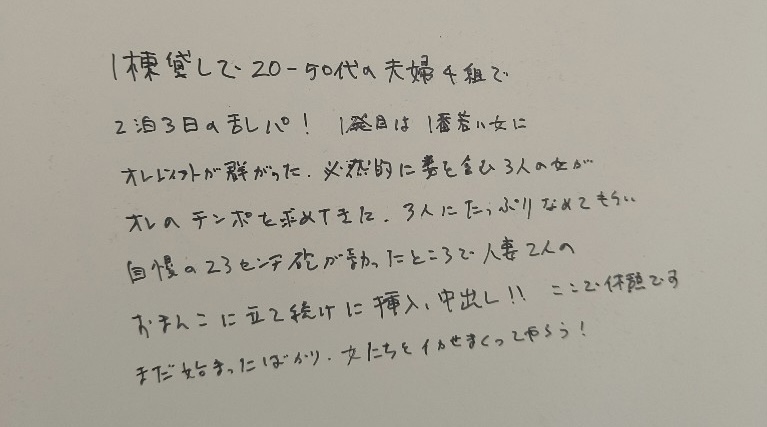 1棟貸しで20-50代の夫婦4組で
2泊3日の乱パ! 1発目は1番若い女に
オレ以外が群がった。必然的に妻を含む3人の女が
オレのチンポを求めてきた。3人にたっぷりなめてもらい
自慢の23センチ砲が勃ったところで人妻2人の
おまんこに立て続けに挿入、中出し!! ここで休憩です
まだ始まったばかり、女たちをイカせまくってやろう!